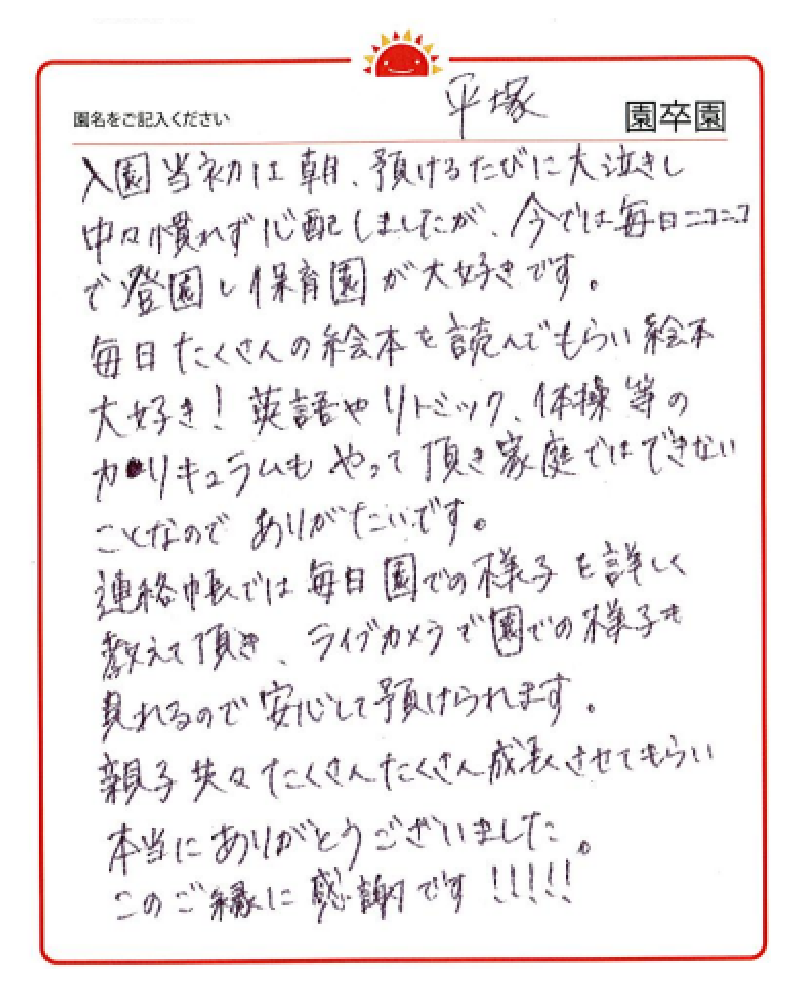 園名をご記入ください 平塚 園卒園
入園当初は朝、預けるたびに大泣きし
中々慣れず心配しましたが、今では毎日ニコニコ
で登園し保育園が大好きです。
毎日たくさんの絵本を読んでもらい絵本
大好き！英語やリトミック、体操等の
カリキュラムもやって頂き家庭ではできない
ことなのでありがたいです。
連絡帳では毎日園での様子を詳しく
教えて頂き、ライブカメラで園での様子も
見れるので安心して預けられます。
親子共々たくさんたくさん成長させてもらい
本当にありがとうございました。
このご縁に感謝です!!!!!